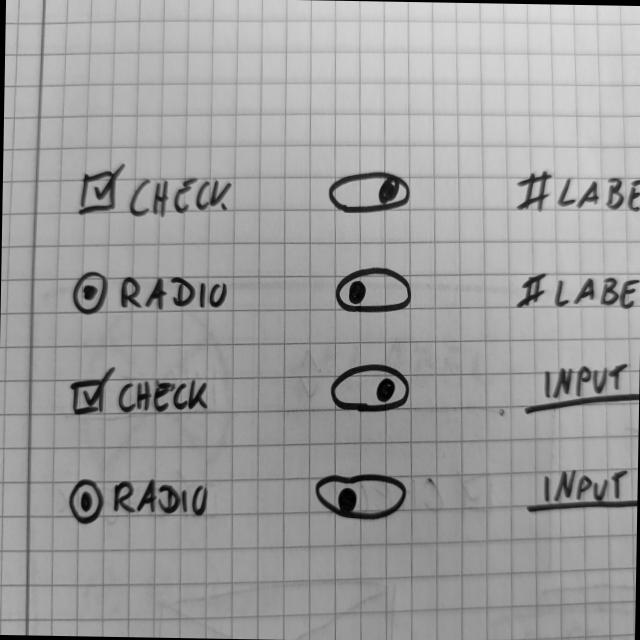 CHECK #LABE
RADIO #LABE
CHECK INPUT
RADIO INPUT